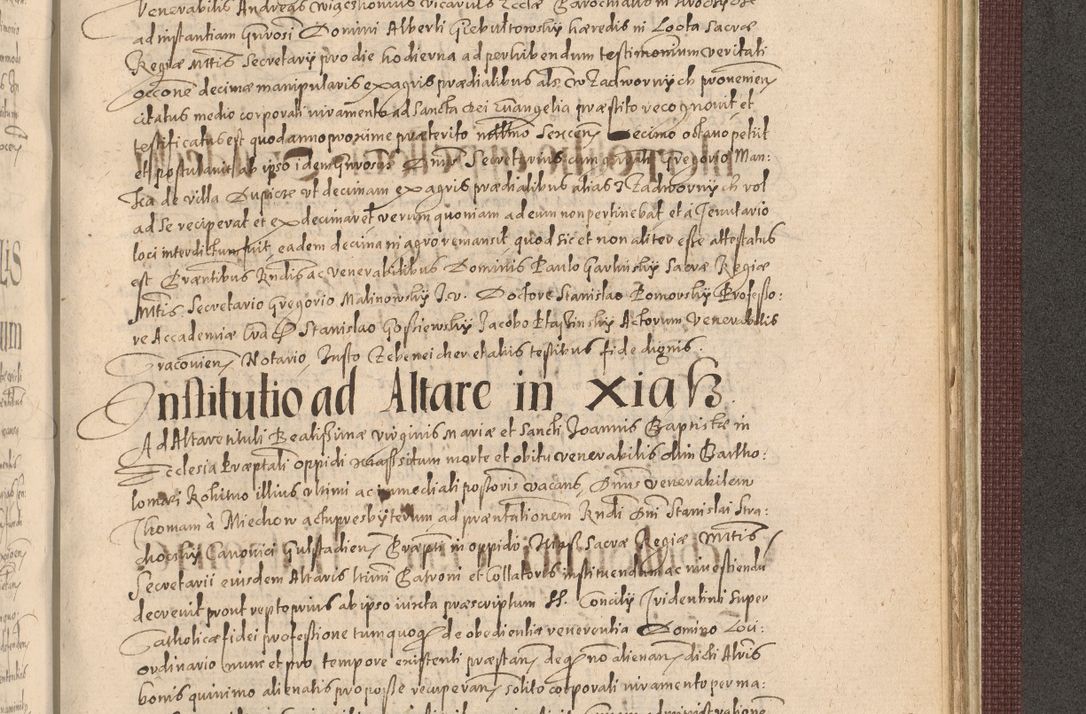 Venerabilis Andreas Wiaeshonius vicarius Ecclae Parochialis in
ad instantiam Gnrosi Domini Alberti Giebultowsky haeredis in Loota Sacrae
Regiae Mttis Secretarij pro die hodierna ad perhibendum testimonium veritati
occone decimae manipularis ex agris praedialibus als Zadwornych provenien
citatus medio corporali iuramento ad Sancta Dei Evangelia praestito recognovit et
testificatus est quod anno proxime praeterito mllmo Sexcen decimo octavo petiit
et postulavit ab ipso idem Gnrosus Dnus Secretarius cum Gregorio Man-
de villa ut decimam ex agris praedialibus alias Zadwornych vol
ad se reciperat et ex decimaret verum quoniam ad eum non pertinebat et a Tenutario
loci interdictum fuit, eadem decima in agro remansit quod sic et non aliter esse attestatus
est Praentibus Rndis ac venerabilibus Dominis Paulo Sacrae Regiae
Mttis Secretario Gregorio Malinowsky J. v. Doctore Stanislao Pomorsky Professo:
re Academiae Crac Stanislao Gostiewsky Jacobo Actorum Venerabilis
Cracovien Notario, Justo Zebeneicher et aliis testibus fide dignis.
Institutio ad Altare in Xiaß.
Ad Altare tituli Beatissimae virginis Mariae et Sancti Joannis Baptistae in
Ecclesia Praeptali oppidi situm morte et obitu venerabilis olim Bartho:
lomaei Rohitno illius ultimi ac immediati possoris vacans, Dnus venerabilem
Thomam à Miechow presbyterum ad praentationem Rndi Dni Stanislai Stra
Canonici Gutstadien Praepti in oppido Sacrae Regiae Mttis
Secretarii eiusdem Altaris ltimi Patroni et Collatoris instituendum ac investiendu
decrevit prout repto prius ab ipso iuxta praescriptum SS. Concilij Tridentini super
Catholicae fidei professione tum quoq de obedientia reverentia Domino Loci:
ordinario nunc et pro tempore existenti praestan deq no alienan dicti Altris
bonis quinimo alienatis pro posse recuperan solito corporali iuramento per ma: